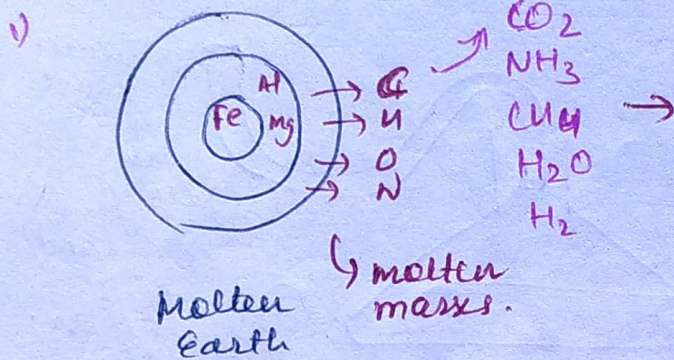 1)
Al
Fe
Mg
→ C
→ H
→ O
→ N
CO2
NH3
CH4 →
H2O
H2
molten
masses.
Molten
Earth